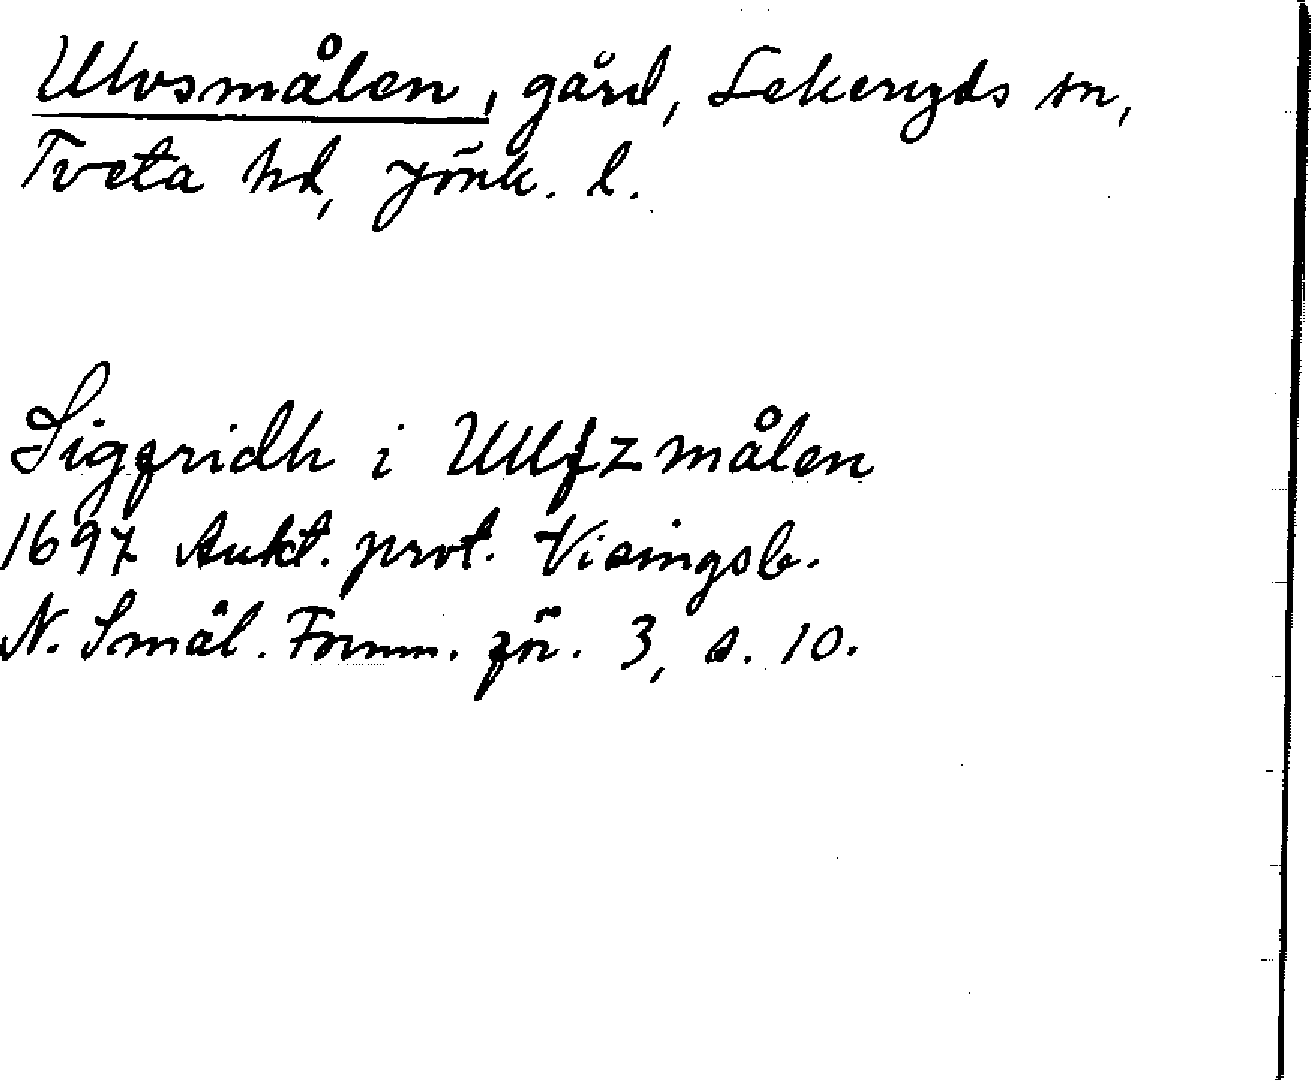 Ulvsmålen, gård, Lekeryds sn,
Tveta hd, Jönk. l.
Sigfridh i Ullfzmålen
1697 Aukt. prot. Visingsb.
N. Smål. Fornm. för. 3, s. 10.